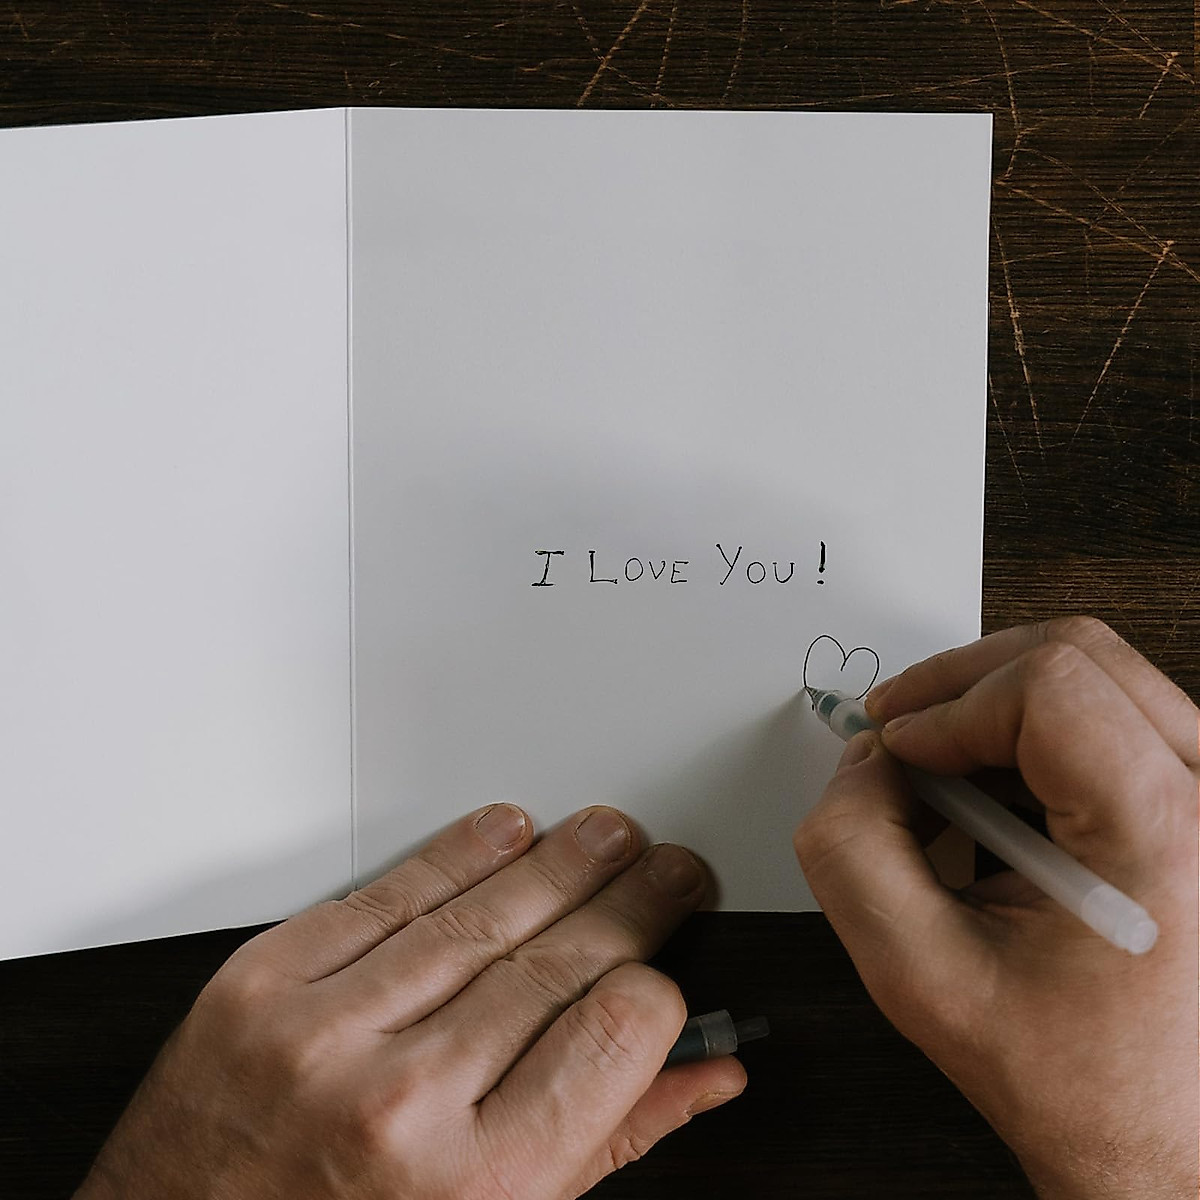 I LOVE YOU!